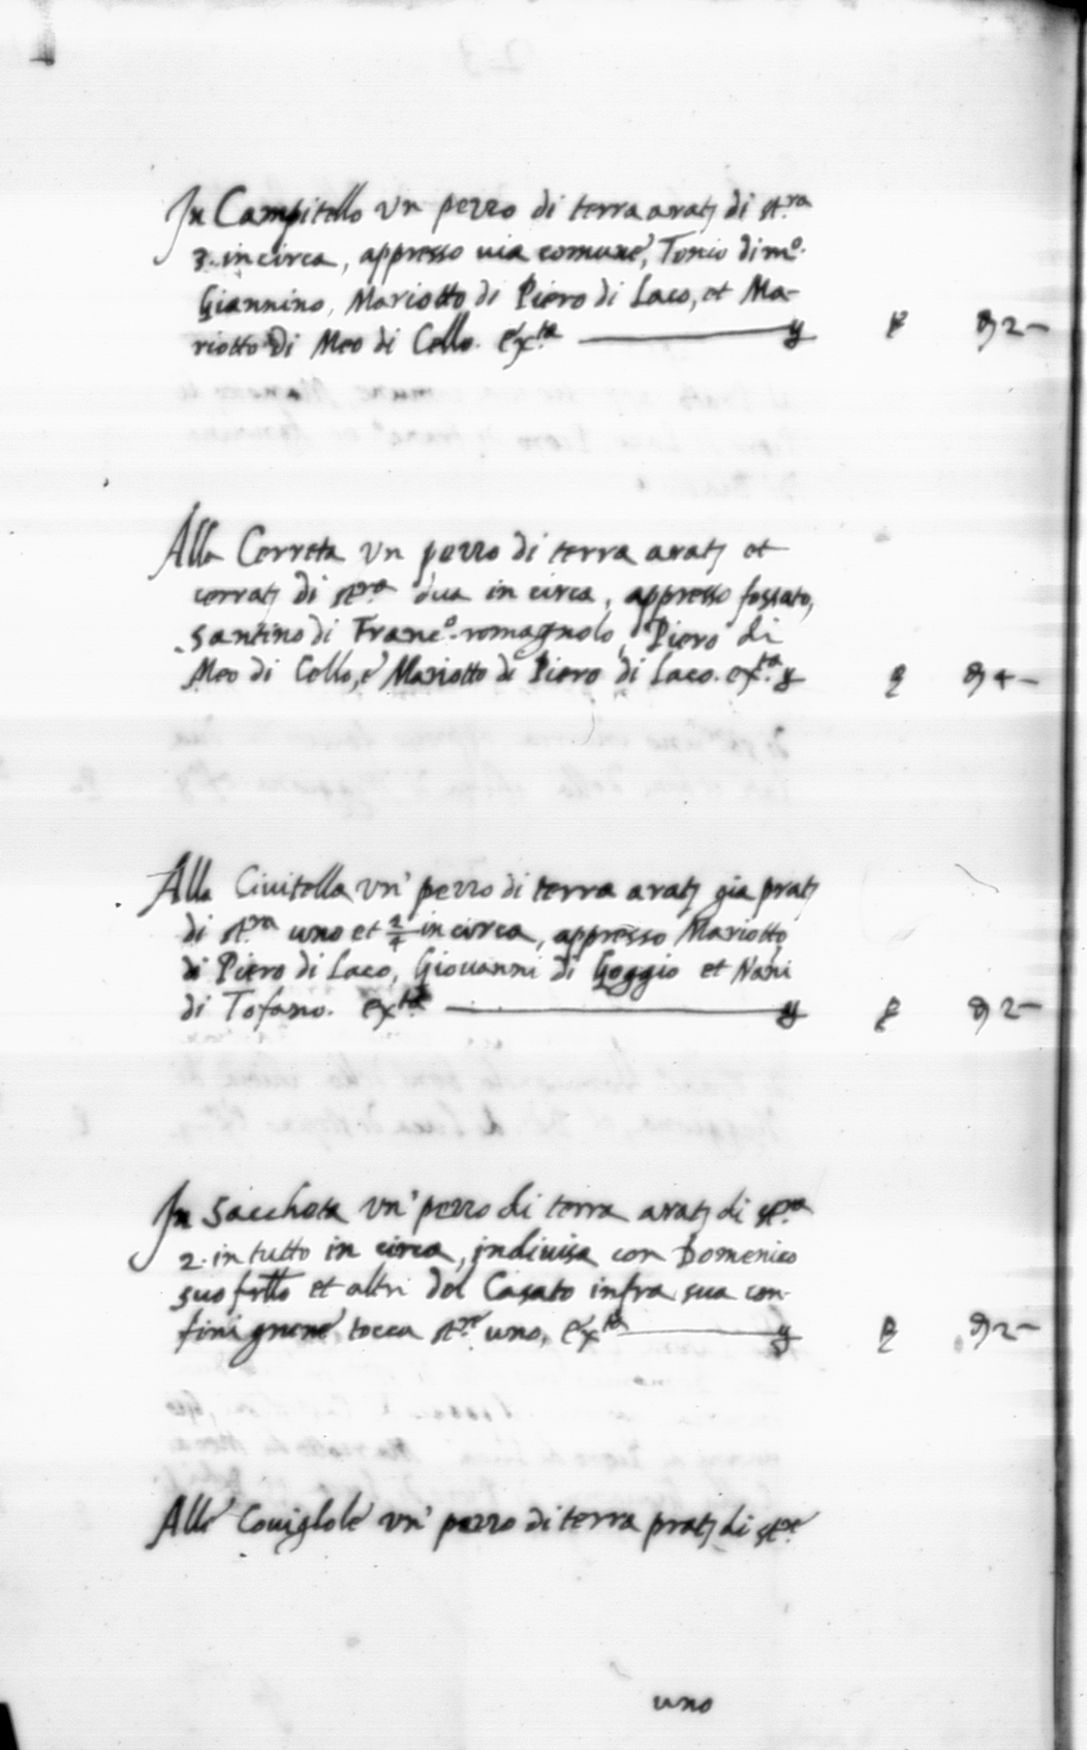 In Campitello vn pezzo di terra aratª di stra
3. in circa, appresso uia comune, Tonio di mo.
Giannino, Mariotto di Piero di Laco, et Ma-
riotto di Meo di Cello. exta
Alla Cerreta vn pezzo di terra aratª et
cerratª di stra dua in circa, appresso fossato,
Santino di Franco. romagnolo, Piero di
Meo di Cello, e Mariotto di Piero di Laco. exta
Alla Ciuitella vn' pezzo di terra aratª gia pratª
di stra uno et 2/4 in circa, appresso Mariotto
di Piero di Laco, Giouanni di Goggio et Nani
di Tofano. exta
In Saccheta vn' pezzo di terra aratª di stra
2. in tutto in circa, indiuisa con Domenico
suo frllo et altri del Casato infra sua con-
fini tocca stre uno, exta
Alle Couiglole vn' pezzo di terra pratª di stre
uno